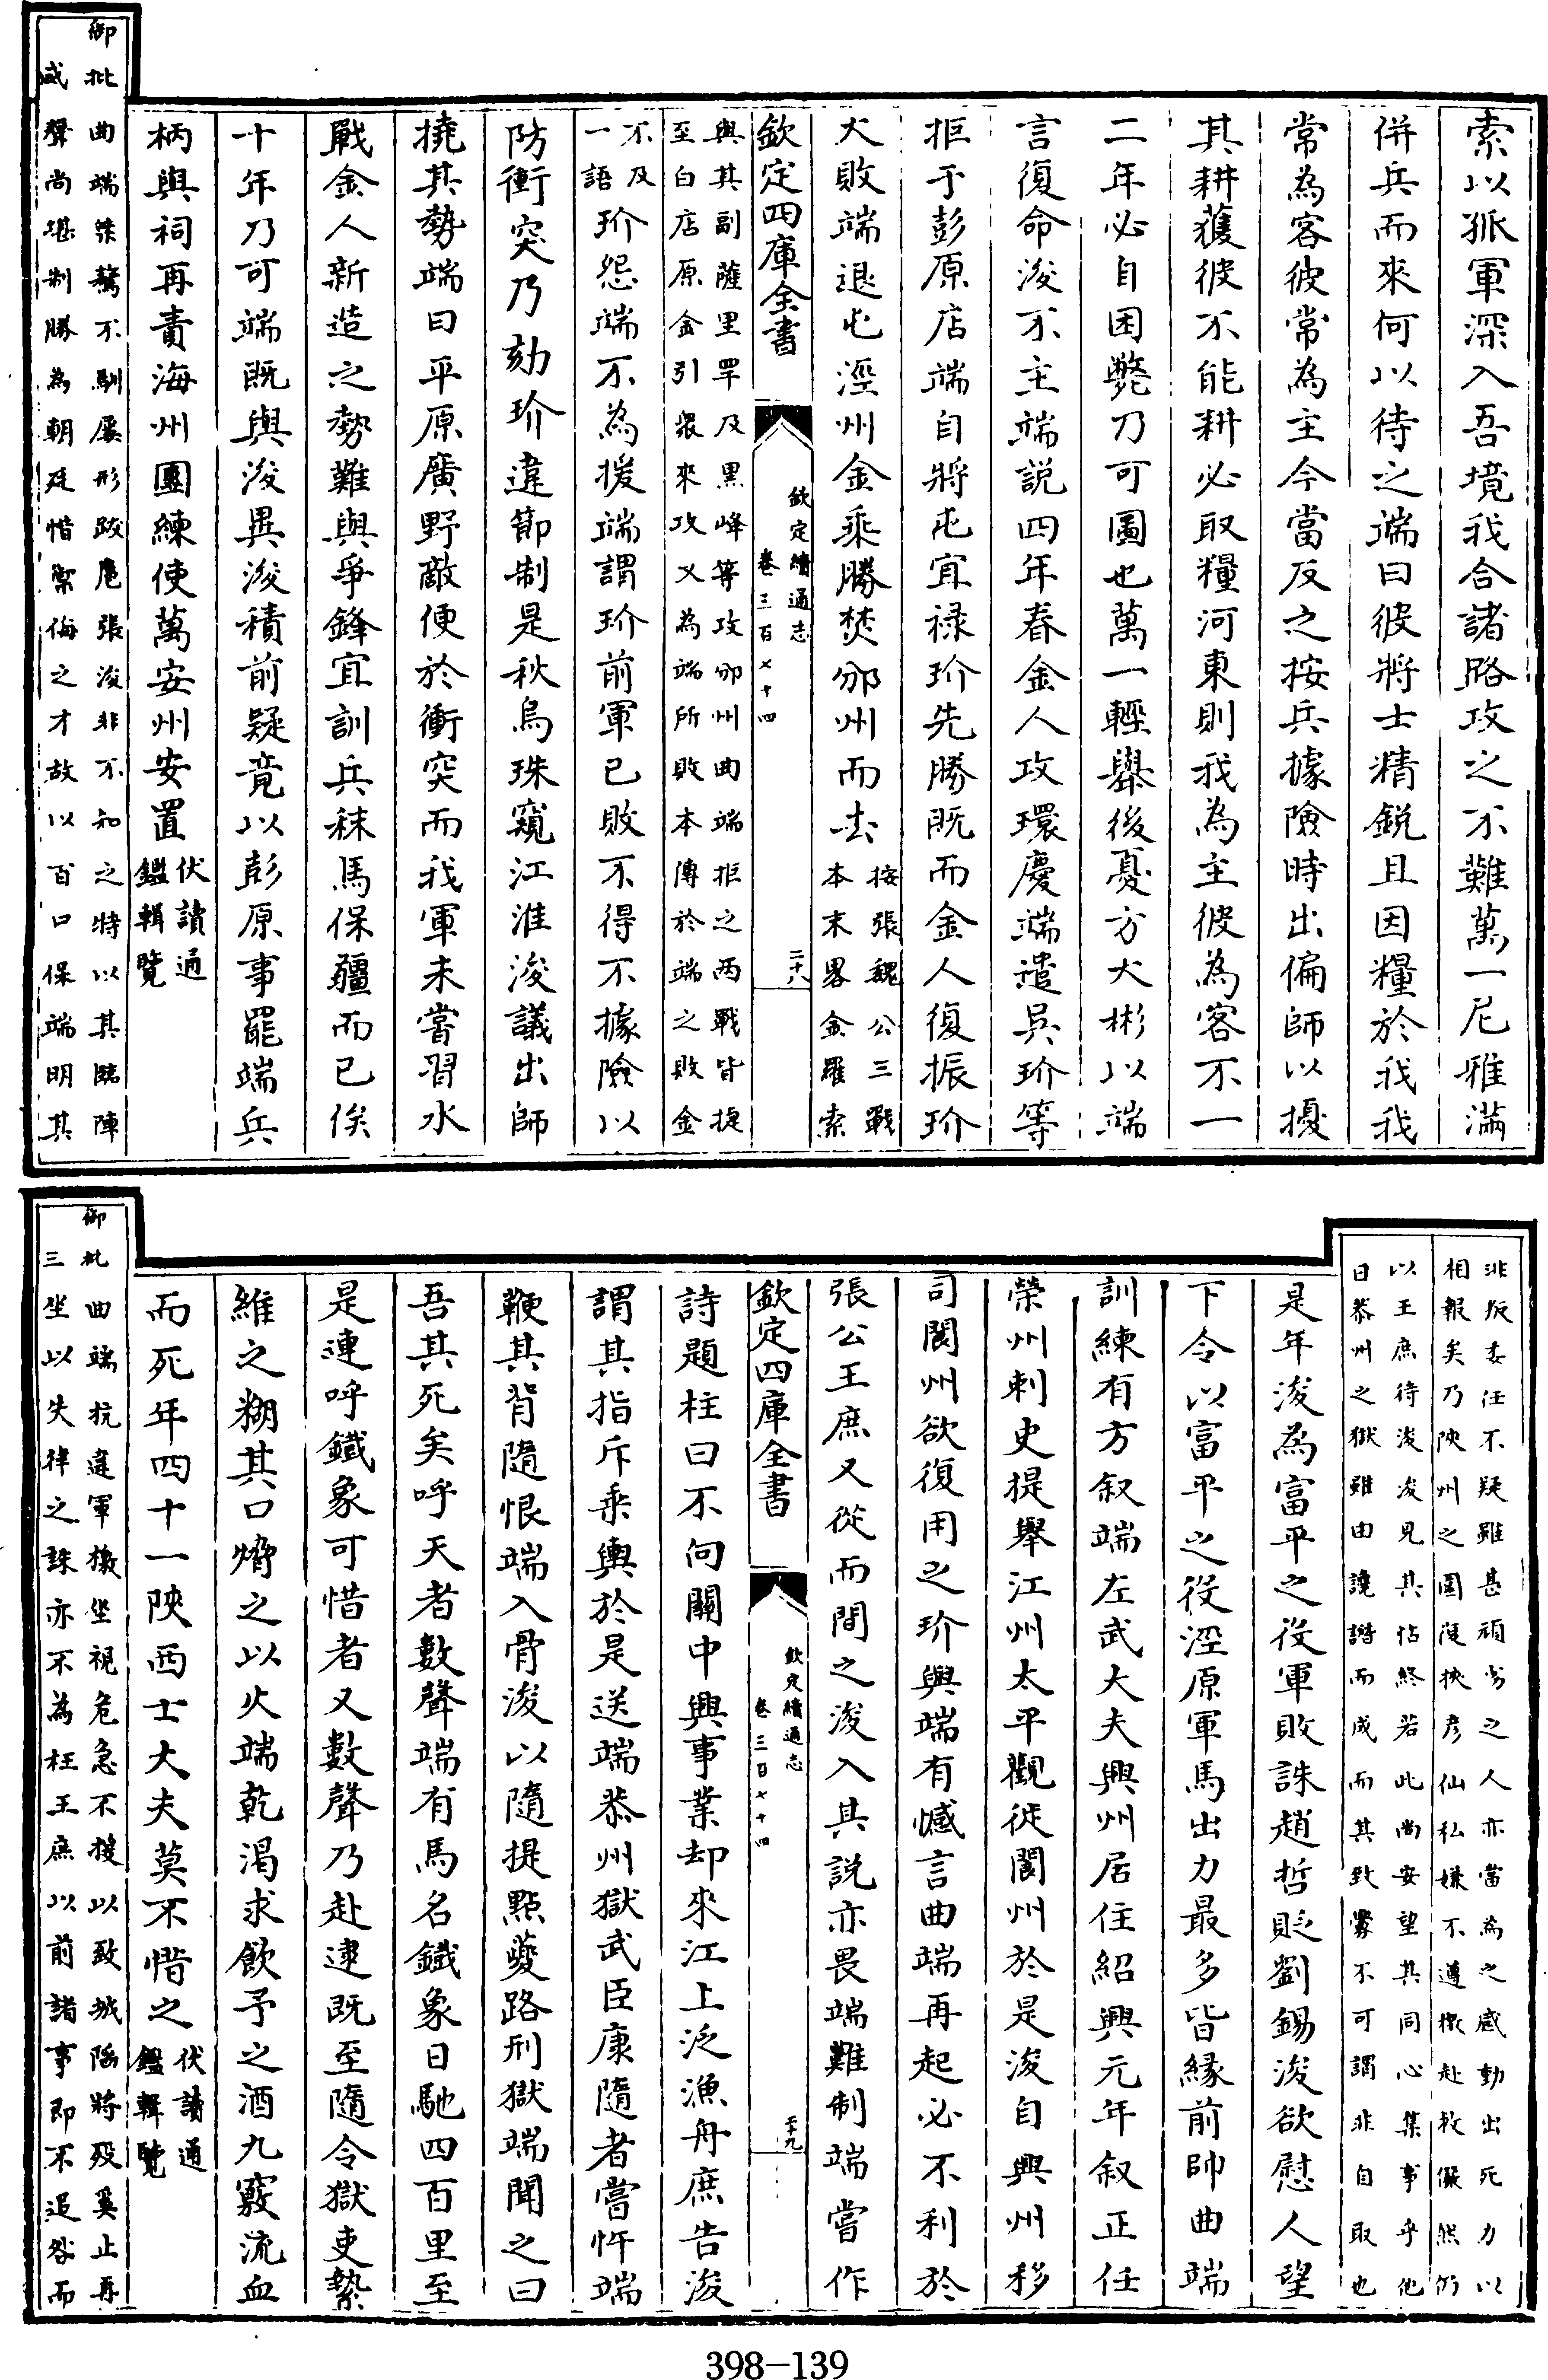 索以孤軍深入吾境我合諸路攻之不難萬一尼雅滿
併兵而來何以待之端曰彼將士精鋭且因糧於我我
常為客彼常為主今當反之按兵據險時出偏師以擾
其耕穫彼不能耕必取糧河東則我為主彼為客不一
二年必自困斃乃可圖也萬一輕舉後憂方大彬以端
言復命浚不主端説四年春金人攻環慶端遣吳玠等
拒于彭原店端自將屯宜禄玠先勝既而金人復振玠
大敗端退屯涇州金乘勝焚邠州而去按張魏公三戰
本末畧金羅索
欽定四庫全書
欽定續通志
卷三百七十四
二十八
與其副薩里罕及黑峰等攻邠州曲端拒之两戰皆捷
至白店原金引衆來攻又為端所敗本傳於端之敗金
不及
一語玠怨端不為援端謂玠前軍已敗不得不據險以
防衝突乃劾玠違節制是秋烏珠窺江淮浚議出師
撓其勢端曰平原廣野敵便於衝突而我軍未嘗習水
戰金人新造之勢難與爭鋒宜訓兵秣馬保疆而已俟
十年乃可端既與浚異浚積前疑竟以彭原事罷端兵
柄與祠再責海州團練使萬安州安置伏讀通
鑑輯覽
御批曲端桀驁不馴屢形跋扈張浚非不知之特以其臨陣
威聲尚堪制勝為朝廷惜禦侮之才故以百口保端明其
非叛委任不疑雖甚頑劣之人亦當為之感動出死力以
相報矣乃陜州之圍復挾彦仙私嫌不遵檄赴救儼然仍
以王庶待浚浚見其怙終若此尚安望其同心集事乎他
日恭州之獄雖由讒譖而成而其致釁不可謂非自取也
是年浚為富平之役軍敗誅趙哲貶劉錫浚欲慰人望
下令以富平之役涇原軍馬出力最多皆緣前帥曲端
訓練有方叙端左武大夫興州居住紹興元年叙正任
榮州刺史提舉江州太平觀徙閬州於是浚自興州移
司閬州欲復用之玠與端有憾言曲端再起必不利於
張公王庶又從而間之浚入其説亦畏端難制端嘗作
欽定四庫全書
欽定續通志
卷三百七十四
二十九
詩題柱曰不向關中興事業却來江上泛漁舟庶告浚
謂其指斥乘輿於是送端恭州獄武臣康隨者嘗忤端
鞭其背隨恨端入骨浚以隨提點夔路刑獄端聞之曰
吾其死矣呼天者數聲端有馬名鐵象日馳四百里至
是連呼鐵象可惜者又數聲乃赴逮既至隨令獄吏縶
維之糊其口熁之以火端乾渴求飲予之酒九竅流血
而死年四十一陜西士大夫莫不惜之伏讀通
鑑輯覽
御批曲端抗違軍檄坐視危急不援以致城陷將殁奚止再
三坐以失律之誅亦不為枉王庶以前諸事即不追咎而
398-139